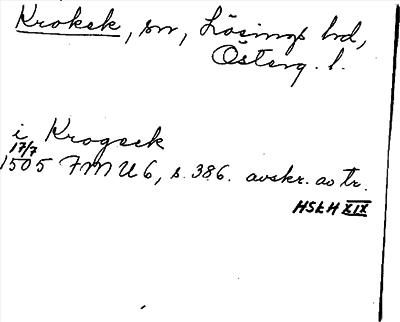 Krokek, sn, Lösings hd,
Österg. l.
i Krogeek
17/7
1505 FMU 6, s. 386. avskr. av tr.
HSH XIX